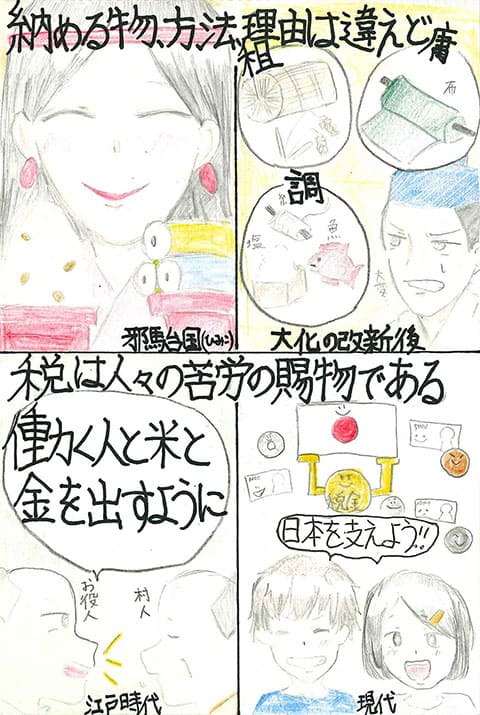 納める物、方法、理由は違えど
租
庸
布
調
糸
塩
魚
大変
邪馬台国(ひみこ)
大化の改新後
税は人々の苦労の賜物である
働く人と米と
金を出すように
お役人
村人
江戸時代
税金
日本を支えよう!!
現代